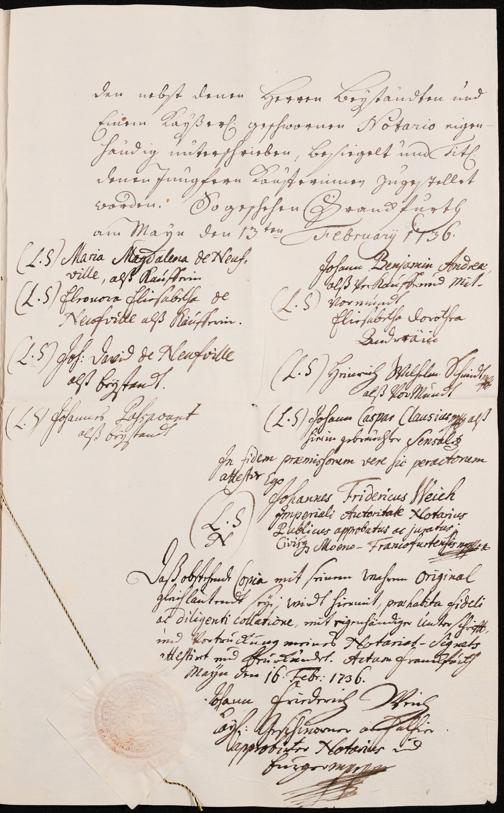 den nebst denen Herren Beyständten und
Einem Kayßerl. geschwornen Notario eigen-
händig unterschrieben, besiegelt und
denen Jungfern Käufferinnen zugestellet
worden. So geschehen Franckfurth
am Mayn den 13ten February 1736.
(L.S) Maria Magdalena de Neuf-
ville, alß Käufferin
(L.S) Eleonora Elisabetha de
Neufville alß Käufferin.
(L.S) Joh. David de Neufville
alß beystandt.
(L.S) Johannes Passavant
alß beystandt
Johann Benjamin Andrea
alß Verkäuffer und Mit-
(L.S) Vormund
Elisabetha Dorothea
(L.S) Heinrich Wilhelm
alß Vormund
(L.S) Johann Caspar Clausius mpp alß
hierin gebrauchter Sensal
In fidem præmissorum vere sic peractorum
attestor Ego
Johannes Fridericus Weich
(L.S) Imperiali Autoritate Notarius
N Publicus approbatus ac juratus,
Civisq Moeno-Francofurtensis mppa
Daß obstehende Copia mit seinem wahren Original
gleichlautend sey, wird hiermit, præhabita fideli
ac diligenti collatione, mit eigenhändiger Unterschrifft
und Vortruckung meines Notariat-Signets
attestirt und beurkundet. Actum Franckfurth
Mayn den 16. Febr. 1736.
Johann Friederich Weich
Kays. Geschworner
approbirter Notarius und
burger mppria